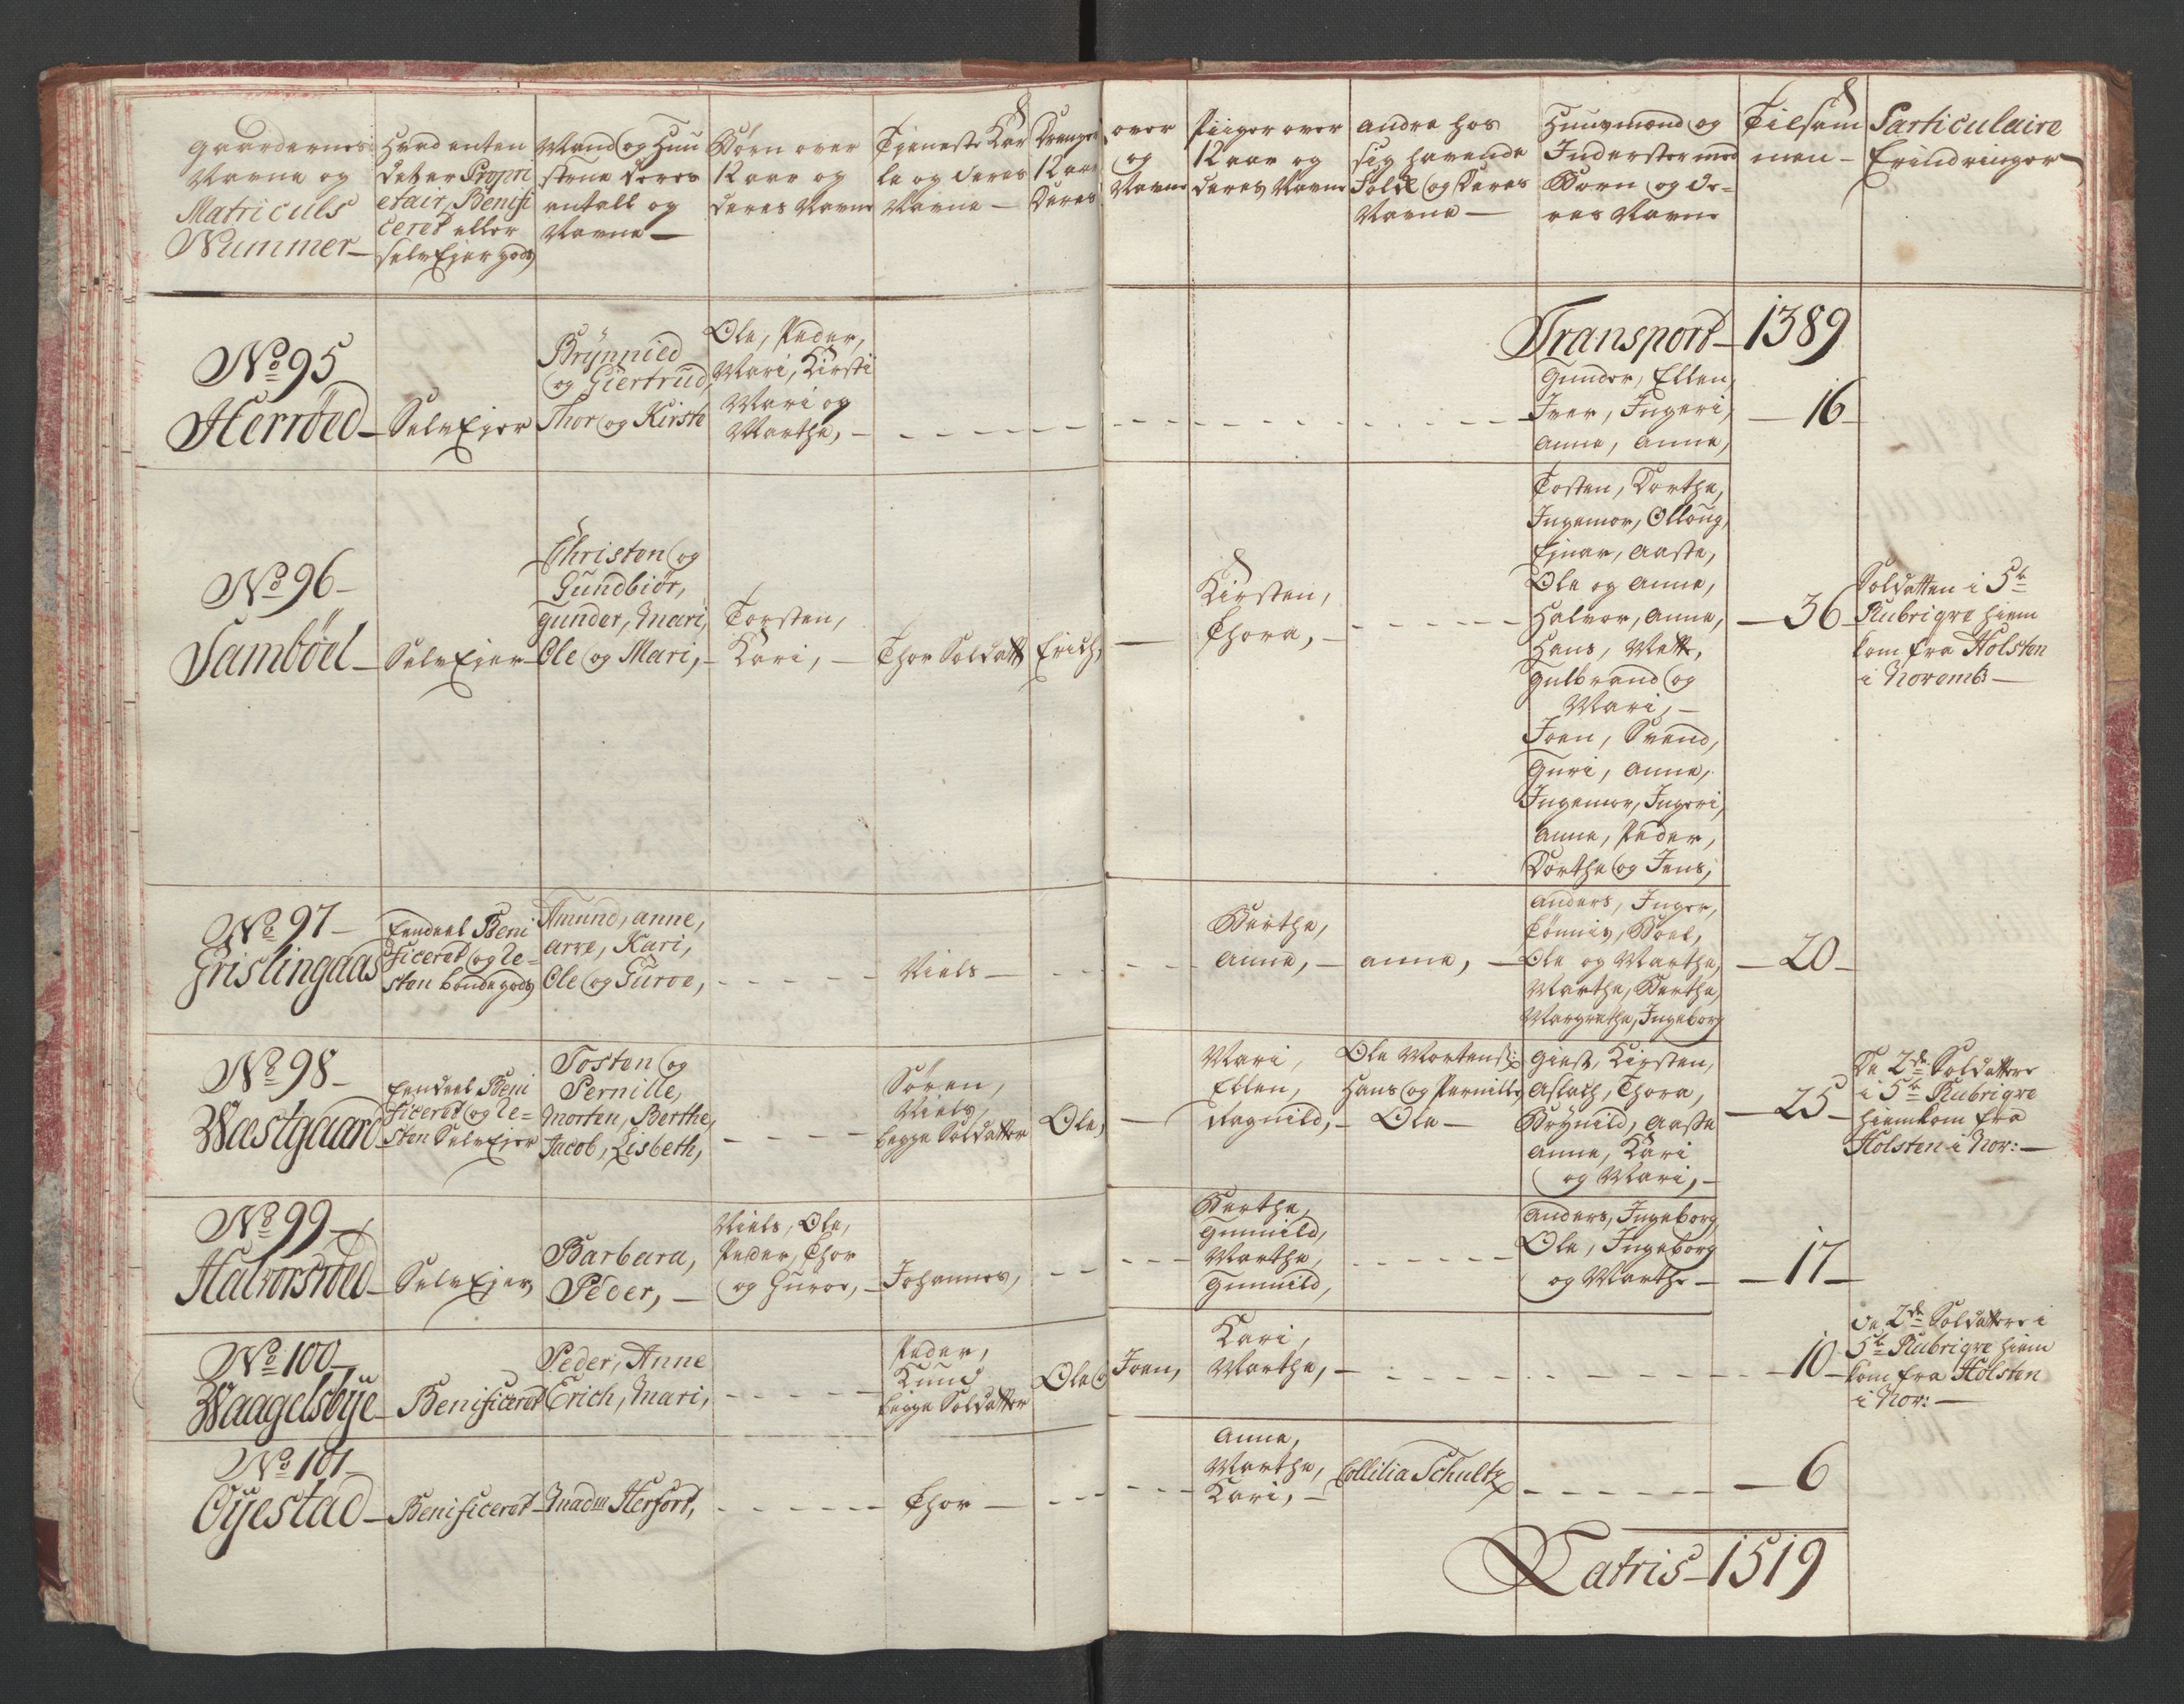 Gaardernes
Navne og
Matriculs
Nummer
Hvad enten
det er Propri
etair, Benifi
ceret eller
selvEjer gods
Mand og Huu
strue deres
antall og
Navne
Børn over
12 aar og
deres Navne
Tjeneste Kar
le og deres
Navne
Drenge
12 aar
Deres
over
og
Navne
Piiger over
12 aar og
deres Navne
Andre hos
sig havende
Folck og Deres
Navne
Huusmænd og
Inderster med
Børn og De-
res Navne
Tilsam
men
Particulaire
Erindringer
Transport 1389
No 95
Herröed
SelvEjer
Brÿnnild
og Giertrud,
Thor og Kirste
Ole, Peder,
Mari, Kirsti
Mari og
Marthe,
Gunder, Ellen,
Iver, Ingeri,
Anne, Anne,
16
No 96
Samböel
SelvEjer
Christen og
Gundbiör,
Gunder, Mari,
Ole og Mari,
Torsten,
Kari,
Thor Soldatt
Erich,
Kirsten,
Thora,
Tosten, Dorthe,
Ingemor, Olloug,
Ejnar, Aaste,
Ole og Anne,
Halvor, Anne,
Hans, Mette,
Gulbrand og
Mari,
Joen, Svend,
Guri, Anne,
Ingemor, Ingeri,
Anne, Peder,
Dorthe og Jens,
36
Soldatten i 5te
Rubrigve hiem
kom fra Holsten
i Novemb:
No 97
Grislingaas
Eendeel Beni
ficeret og Re-
sten bondegods
Amund, Anne,
Arve, Kari,
Ole og Gurve,
Niels
Berthe,
Anne,
Anne,
Anders, Inger,
Tönnis, Boel,
Ole og Marthe,
Marthe, Berthe,
Margrethe, Ingeborg
20
No 98
Wæstgaard
Eendeel Beni
ficeret og Re-
sten SelvEjer
Tosten og
Pernille,
Morten, Berthe,
Jacob, Lisbeth,
Sören,
Niels,
begge Soldatter
Ole,
Mari,
Ellen,
Ragnild,
Ole Mortens:
Hans og Pernille,
Ole
Giest, Kirsten,
Aslach, Thora,
Brÿnild, Aaste
Anne, Kari
og Mari,
25
De 2de Soldatter
i 5te Rubrigve
hiemkom fra
Holsten i Nov:
No 99
Halvorsröed
SelvEjer
Barbara,
Peder,
Niels, Ole,
Peder, Thor
og Gurve,
Johannes,
Berthe,
Gunnild,
Marthe,
Gunnild,
Anders, Ingeborg
Ole, Ingeborg
og Marthe
17
No 100
Waagelsbÿe
Benificeret
Peder, Anne
Erich, Mari,
Peder,
Knud
begge Soldatter
Ole og
Joen,
Kari,
Marthe,
10
De 2de Soldatter i
5te Rubrigve hiem
kom fra Holsten
i Nov:
No 101
Oÿestad
Benificeret
Madm Herfort,
Thor
Anne,
Marthe,
Kari,
Collilia Schultz
6
Latris 1519